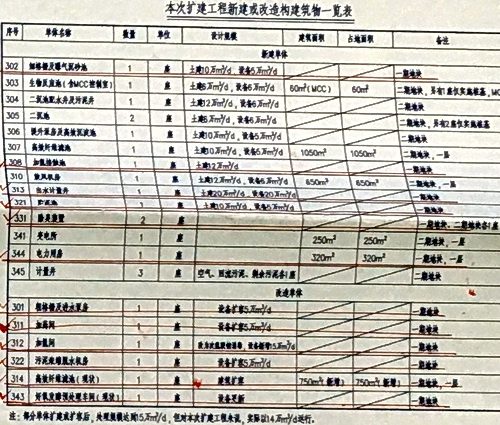 本次扩建工程新建或改造构建筑物一览表
序号 单体名称 数量 单位 设计规模 建筑面积 占地面积 备注
新建单体
302 细格栅及曝气沉砂池 1 座 土建10万m³/d，设备5万m³/d 一期地块
303 生物反应池（含MCC控制室） 1 座 土建6万m³/d，设备6万m³/d 60m²(MCC) 60m² 二期地块，另有1座仅实施桩基，MC
304 二沉池配水井及污泥井 1 座 土建12万m³/d，设备6万m³/d 二期地块
305 二沉池 2 座 土建6万m³/d，设备6万m³/d 二期地块，另有2座仅实施桩基
306 提升泵房及高效沉淀池 1 座 土建10万m³/d，设备5万m³/d 二期地块
307 高效纤维滤池 1 座 土建10万m³/d，设备5万m³/d 1050m² 1050m² 二期地块，一层
308 加氯接触池 1 座 土建12万m³/d 一期地块
310 鼓风机房 1 座 土建12万m³/d，设备6万m³/d 650m² 650m² 二期地块，一层
313 出水计量井 1 座 土建20万m³/d，设备20万m³/d 一期地块
321 贮泥池 1 座 土建10万m³/d，设备5万m³/d 一期地块
331 除臭装置 2 座 一期地块、二期地块各1座
341 变电所 1 座 250m² 250m² 二期地块，一层
344 电力用房 1 座 320m² 320m² 一期地块，一层
345 计量井 3 座 空气、回流污泥、剩余污泥各1座 二期地块
改造单体
301 粗格栅及进水泵房 1 座 设备扩容5万m³/d 一期地块
311 加药间 1 座 设备扩容5万m³/d 一期地块
312 加氯间 1 座 设备新增15万m³/d 一期地块
322 污泥浓缩脱水机房 1 座 设备扩容5万m³/d 一期地块
314 高效纤维滤池（现状） 1 座 建筑扩容 750m²(新增) 750m²(新增) 一期地块，一层
343 好氧发酵预处理车间（现状） 1 座 设备更新 一期地块
注：部分单体扩建或扩容后，处理规模达到15万m³/d，但对本次扩建工程来说，实际以14万m³/d运行。